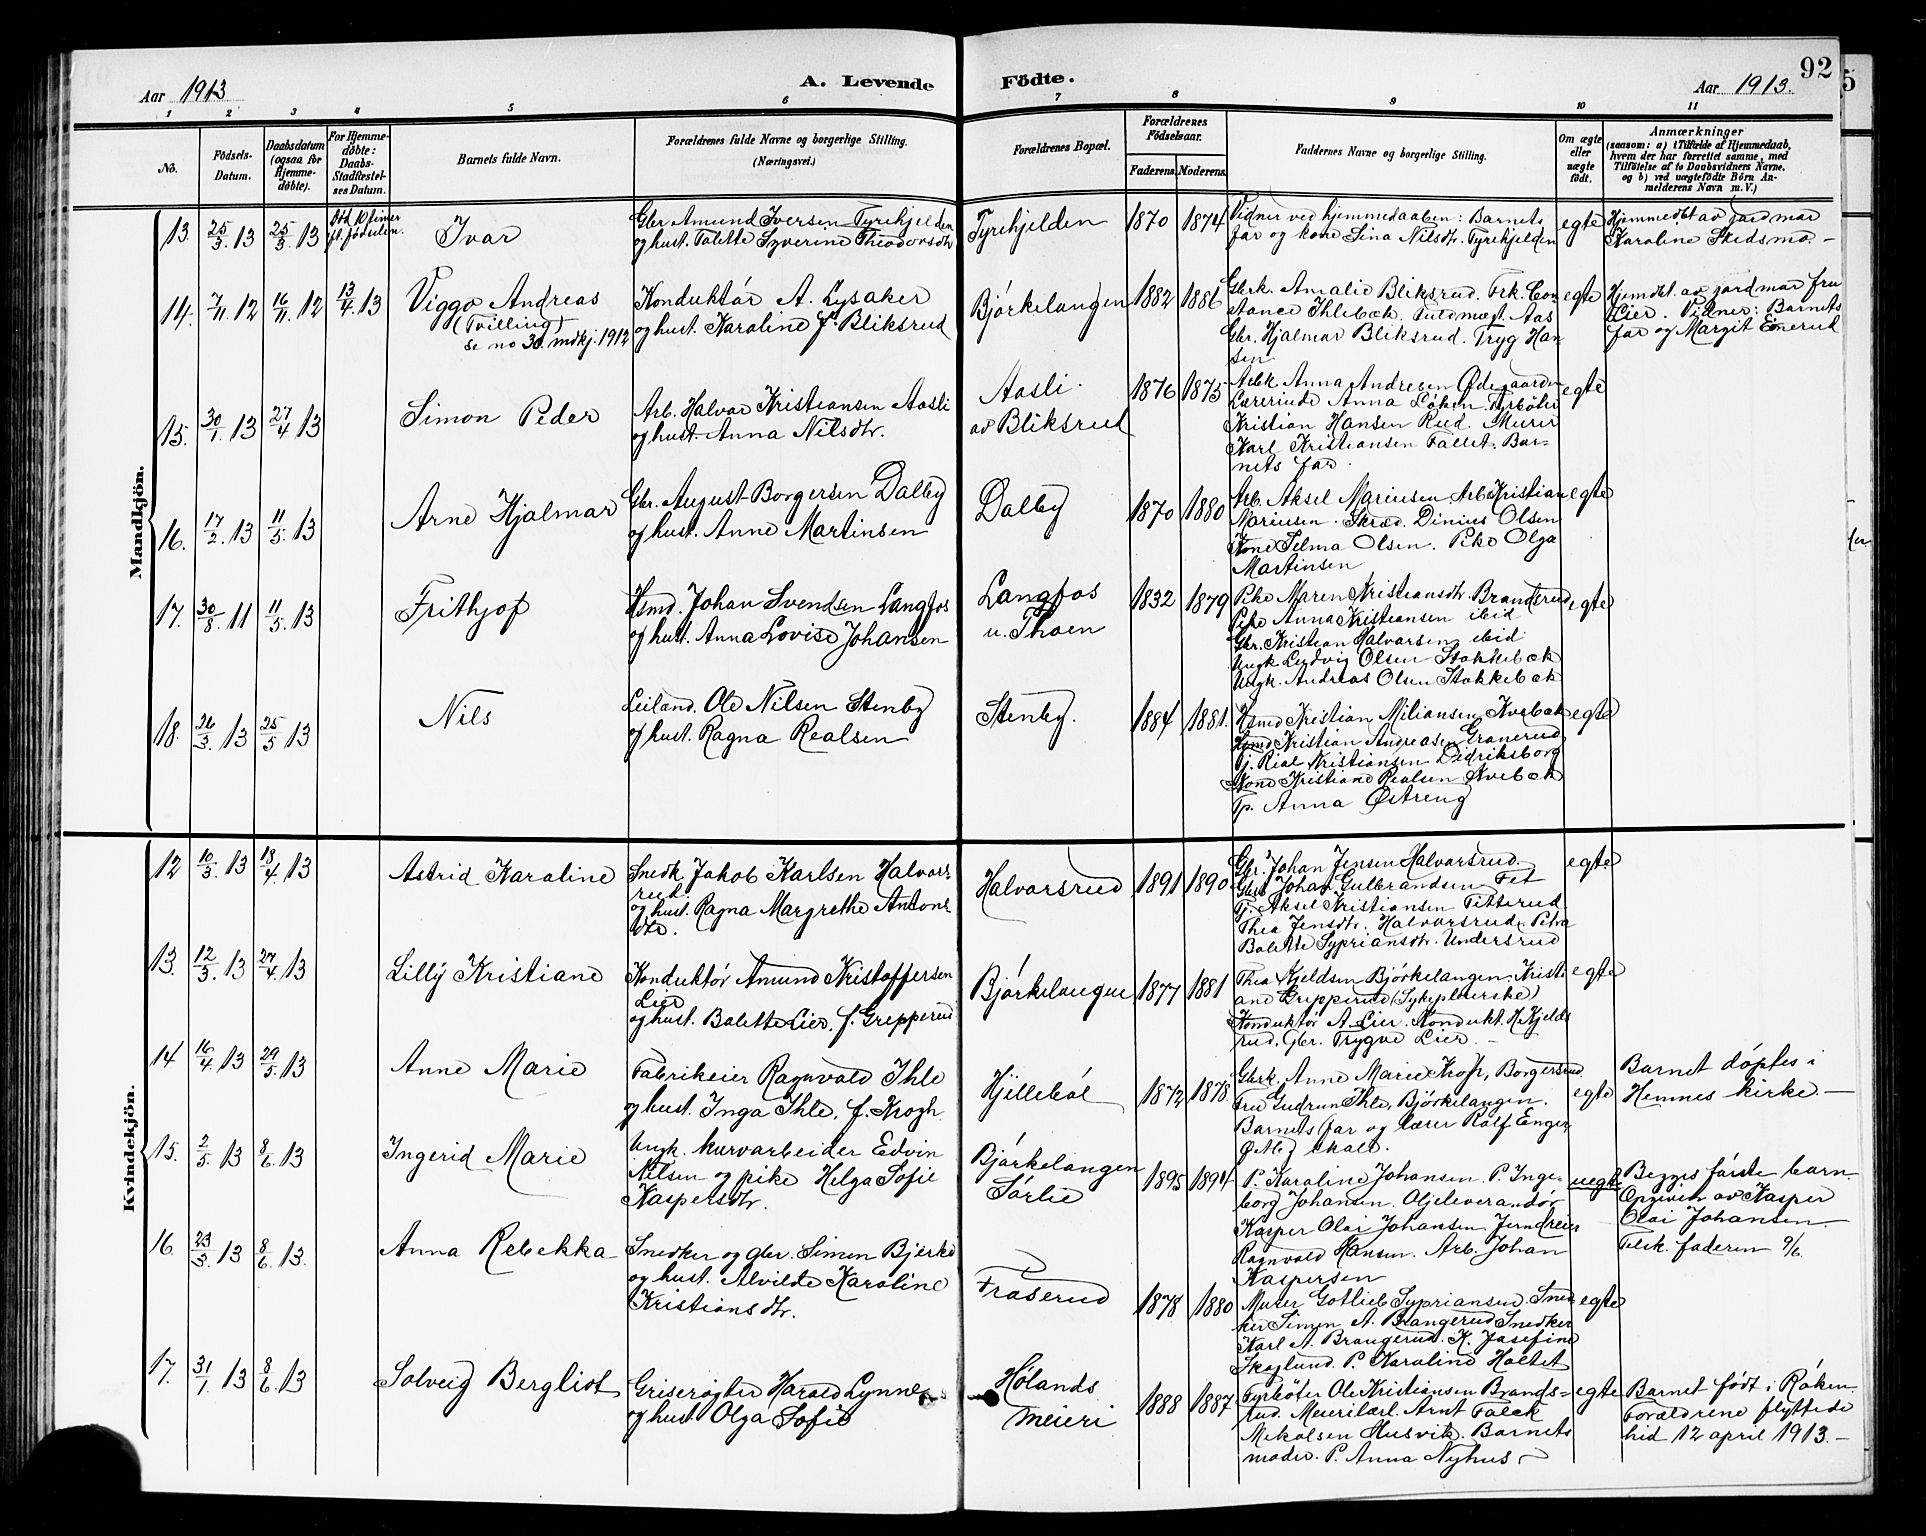 92
Aar 1913
A. Levende
Födte.
Aar 1913.
1 2 3 4 5 6 7 8 9 10 11
No.
Födsels-
Datum.
Daabsdatum
(ogsaa for
Hjemme-
döbte).
For Hjemme-
döbte:
Daabs-
Stadfæstel-
ses Datum.
Barnets fulde Navn.
Forældrenes fulde Navne og borgerlige Stilling.
(Næringsvei.)
Forældrenes Bopæl.
Forældrenes
Födselsaar.
Faderens Moderens
Faddernes Navne og borgerlige Stilling.
Om ægte
eller
uægte
födt.
Anmærkninger
(saasom: a) i Tilfælde af Hjemmedaab,
hvem der har forrettet samme, med
Tilföielse af to Daabsvidners Navne,
og b) ved uægtefödte Börn An-
melderens Navn m. V.)
Mandkjön.
13. 25/3 13 25/3 13
Död 10 timer
ef. födselen.
Ivar
Gbr. Amund Iversen Tyrihjelden
og hust. Talette Syverine Theodorsdtr
Tyrihjelden
1870 1874
Vidner ved hjemmedaaben: Barnets
far og kone Lina Nilsdtr. Tyrihjelden
egte
Hjemmedbt av jordmor
Karoline Skedsmo. -
14. 7/11 12 16/11 12 13/4 13
Viggo Andreas
(Tvilling)
se no 30. mdkj. 1912
Konduktör A. Lysaker
og hust. Karoline f. Bliksrud
Björkelangen
1882 1886
Gbrk. Amalie Bliksrud. Frk. Con
stance Ihlebæk. Fuldmægt. Aas
Gbr. Hjalmar Bliksrud. Tryg Han
sen
egte
Hjemdbt. av jordmor fru
Lier. Vidner: Barnets
far og Margit Enerud
15. 30/1 13 27/4 13
Simon Peder
Arb. Halvor Kristiansen Aasli
og hust. Anna Nilsdtr.
Aasli
av Bliksrud
1876 1875
Arbk. Anna Andresen Ödegaarden
Lærerinde Anna Löken. Fyrböter
Kristian Hansen Rud. Murer
Karl Kristiansen Fallet. Bar-
nets far.
egte
16. 17/2 13 11/5 13
Arne Hjalmar
Gbr. August Borgersen Dalby
og hust. Anne Martinsen
Dalby
1870 1880
Arb. Aksel Mariusen. Arb. Kristian
Mariusen. Skræd. Dinius Olsen
Kone Selma Olsen. Pike Olga
Martinsen
egte
17. 30/8 11 11/5 13
Frithjof
Hsmd. Johan Svendsen Langfos
og hust. Anna Lovise Johansen
Langfos
u. Thoen
1832 1879
Pike Maren Kristiansdtr. Brandsrud
Pike Anna Kristiansen ibid
Gbr. Kristian Halvorsen ibid
Ungk. Ludvig Olsen Stokkebæk
Ungk. Andreas Olsen Stokkebæk
egte
18. 26/3 13 25/5 13
Nils
Leiland. Ole Nilsen Stenby
og hust. Ragna Realsen
Stenby.
1884 1881.
Hsmd. Kristian Miliansen Kvebæk
Hsmd Kristian Andreasen Granerud
Tj. Rial Kristiansen Didriksborg
Kone Kristiane Realsen Kvebæk
Tp. Anna Østreng
egte
Kvindekjön.
12 10/3 13 18/4 13
Astrid Karoline
Snedk Jakob Karlsen Halvors-
rud.
og hust. Ragna Margrethe Antons-
dtr.
Halvorsrud
1891 1890
Gbr. Johan Jensen Halvorsrud.
Gbr. Johan Gulbrandsen Fet
Tj. Aksel Kristiansen Titterud
Thea Jensdtr. Halvorsrud. Petra
Bolette Sypriansdtr. Undersrud
egte
13. 12/3 13 27/4 13
Lilly Kristiane
Konduktör Amund Kristoffersen
Lier
og hust. Bolette Lier, f. Grepperud
Björkelangen
1877 1881
Thea Kjeldsen Björkelangen. Kristi
ane Grepperud (Sykepleierske)
Konduktör A. Lier. Kondukt. H. Kjelds
rud. Gbr. Trygve Lier. -
egte
14 16/4 13 29/5 13
Anne Marie
Fabrikeier Ragnvald Ihle
og hust. Inga Ihle, f. Krogh
Hjellebøl
1872 1878
Gbrk. Anne Marie Krogh, Borgersrud
Fru Gudrun Ihle, Björkelangen.
Barnets far og lærer Rolf Enger
egte
Barnet döptes i
Hemnes kirke. -
15. 2/5 13 8/6 13
Ingerid Marie
Ungk. kurvarbeider Edvin
Nilsen og pike Helga Sofie
Kaspersdtr.
Björkelangen
Sörlie
1895 1894
P. Karoline Johansen. P. Inge-
borg Johansen. Oljeleverandör
Kasper Olai Johansen. Jerndreier
Ragnvald Hansen. Arb. Johan
Kaspersen
uegte
Begges förste barn.
Opgiven av Kasper
Olai Johansen.
faderen 9/6.
16. 23/3 13 8/6 13.
Anna Rebekka
Snedker og gbr. Simen Bjerke
og hust. Alvilde Karoline
Kristiansdtr.
Fraserud
1878 1880
Murer Gotlieb Sypriansen. Sned
ker Simen A. Brangerud. Snedker
Karl A. Brangerud. K. Josefine
Skoglund. P. Karoline Holtet
egte
17. 31/1 13 8/6 13
Solveig Bergliot
Griserögter Harald Lynne
og hust Olga Sofie
Hølands
meieri
1888 1887
Fyrböter Ole Kristiansen Brands=
rud. Meierilærl. Arnt Falck
Mikalsen Husvik. Barnets
moder. P. Anna Nyhus
egte
Barnet födt i Röken.
Forældrene flyttede
hid 12 april 1913. -